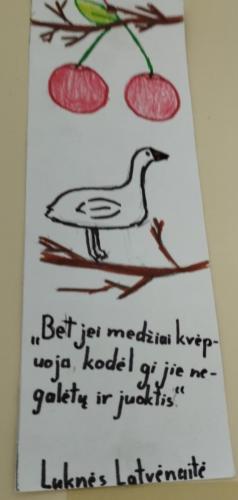 „Bet jei medžiai kvėp-
uoja, kodėl gi jie ne-
galėtų ir juoktis.“
Luknės Latvėnaitė